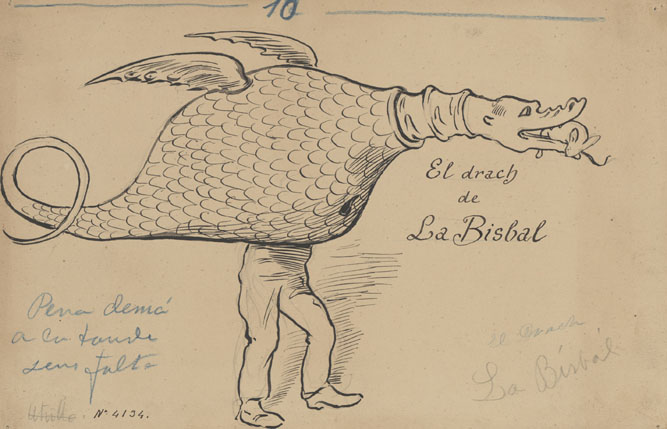 10
El drach
de
La Bisbal
Pera demá
a la tarde
sens falta
Nº 4134.
el Drach
La Bisbal